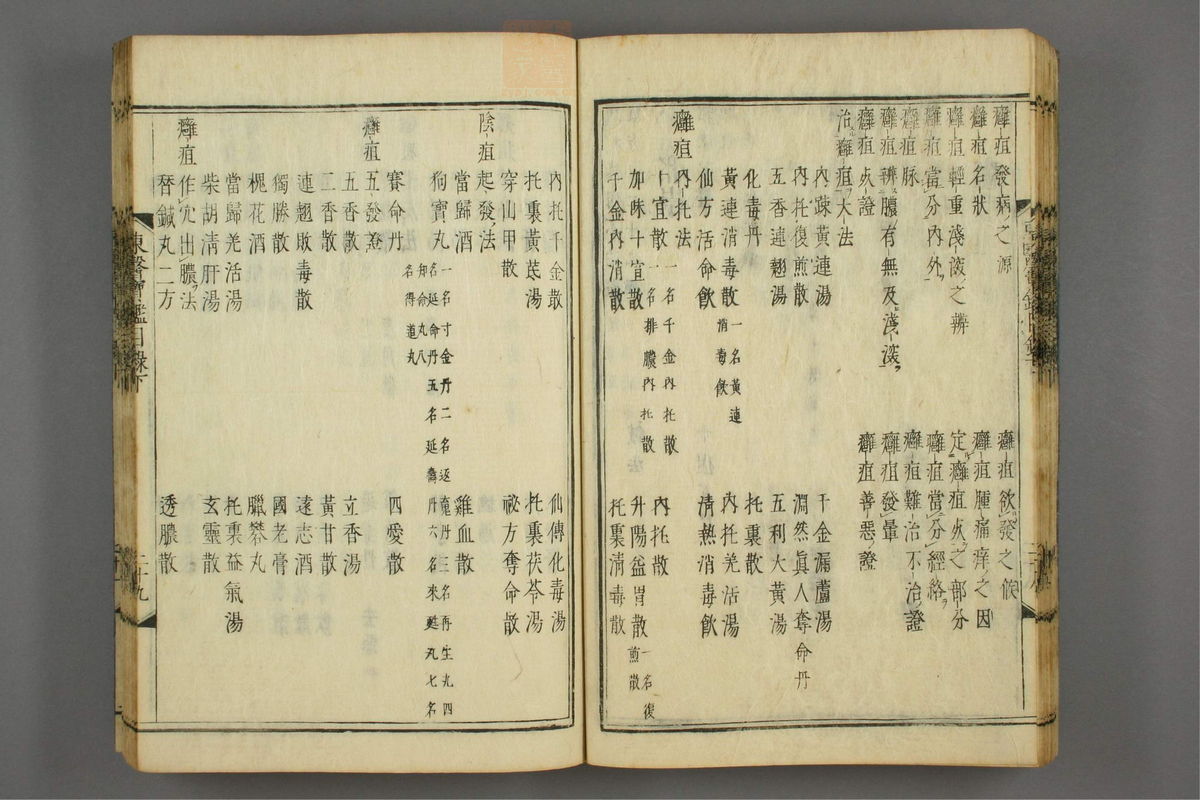 癰疽發病之源
癰疽欲發之候
癰疽名狀
癰疽腫痛痒之因
癰疽輕重淺深之辨
定癰疽㸃之部分
癰疽當分內外
癰疽當分經絡
癰疽脉
癰疽難治不治證
癰疽辨膿有無及淺深
癰疽發暈
癰疽㸃證
癰疽善惡證
治癰疽大法
內疎黃連湯
千金漏蘆湯
內托復煎散
淵然眞人奪命丹
五香連翹湯
五利大黃湯
化毒丹
托裏散
黃連消毒散一名黃連消毒飮
內托羌活湯
仙方活命飮
淸熱消毒飮
癰疽內托法
十宣散一名千金內托散
內托散
加味十宣散一名排膿內托散
升陽益胃散一名復煎散
千金內消散
托裏淸毒散
內托千金散
仙傳化毒湯
托裏黃茋湯
托裏茯苓湯
穿山甲散
秘方奪命散
陰疽起發法
當歸酒
雞血散
狗寶丸一名寸金丹二名返魂丹三名再生丸四名延命丹五名延壽丹六名來甦丸七名知命丸八名得道丸
賽命丹
四愛散
癰疽五發證
五香散
立香湯
二香散
黃甘散
連翹敗毒散
遠志酒
獨勝散
國老膏
槐花酒
臘礬丸
當歸羌活湯
托裏益氣湯
柴胡淸肝湯
玄靈散
癰疽作穴出膿法
替鍼丸二方
透膿散
東醫寶鑑目錄下
二十九